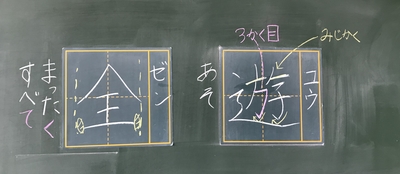 3かく目
みじかく
ユウ
遊
あそ
ゼン
全
まったく
すべて